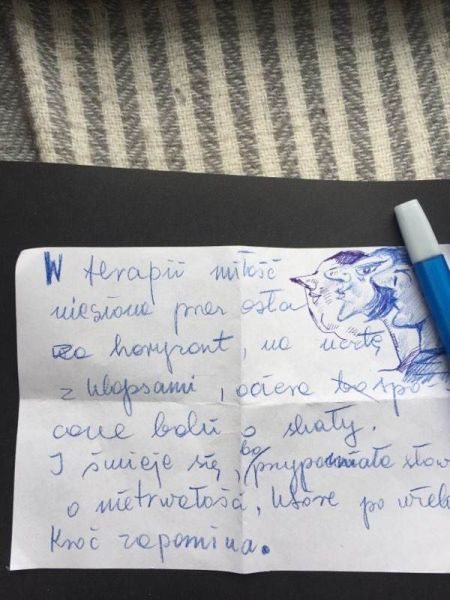 W terapii miłość
niesiona przez osła
za horyzont, na ucztę
z klopsami, ociera
cone bolu o skały.
I śmieje się, bo przypomniała słow
o nietrwałości, które po wielo
kroć zapomina.